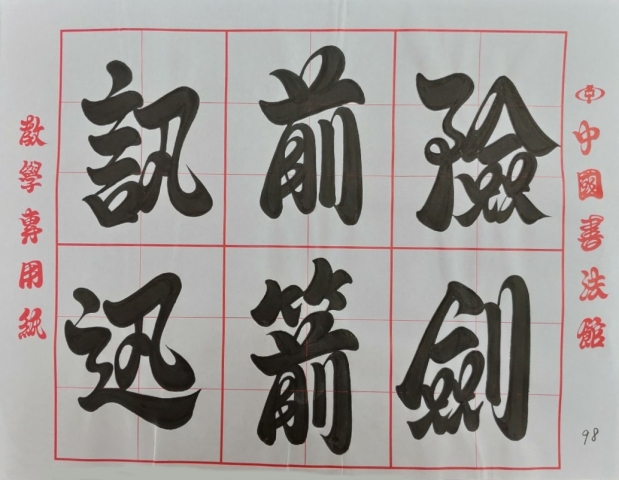 中國書法館
險劍
前箭
訊迅
教學專用紙
98